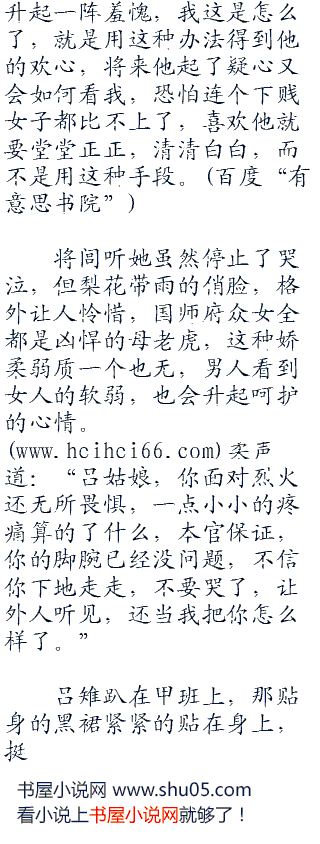 升起一阵羞愧，我这是怎么
了，就是用这种办法得到他
的欢心，将来他起了疑心又
会如何看我，恐怕连个下贱
女子都比不上了，喜欢他就
要堂堂正正，清清白白，而
不是用这种手段。(百度“有
意思书院”)
将闾听她虽然停止了哭
泣，但梨花带雨的俏脸，格
外让人怜惜，国师府众女全
都是凶悍的母老虎，这种娇
柔弱质一个也无，男人看到
女人的软弱，也会升起呵护
的心情。
(www.hcihci66.com)奕声
道：“吕姑娘，你面对烈火
还无所畏惧，一点小小的疼
痛算的了什么，本官保证，
你的脚腕已经没问题，不信
你下地走走，不要哭了，让
外人听见，还当我把你怎么
样了。”
吕雉趴在甲班上，那贴
身的黑裙紧紧的贴在身上，
挺
书屋小说网 www.shu05.com
看小说上书屋小说网就够了！